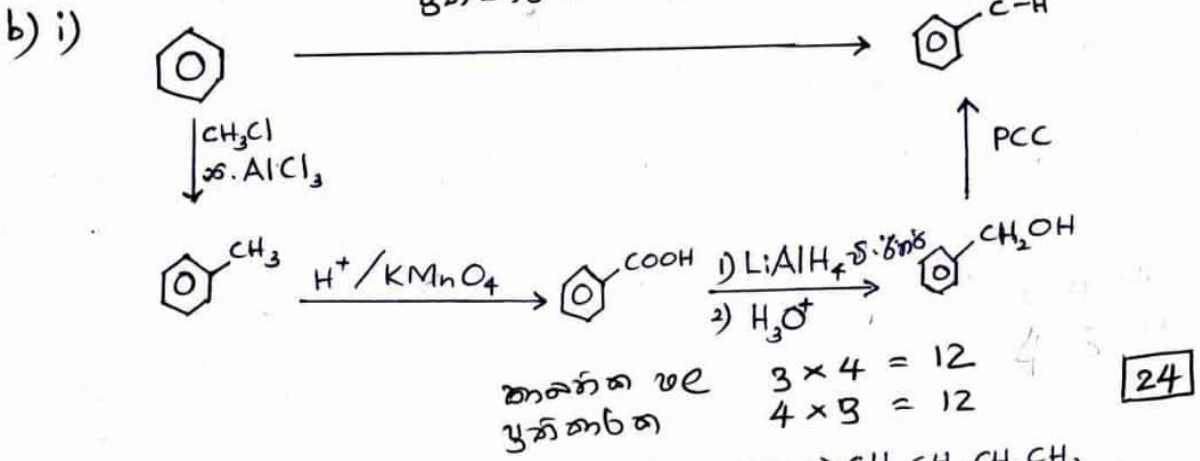 b) i)
C-H
CH₃Cl
නි. AlCl₃
PCC
CH₃
H⁺/KMnO₄
COOH
1) LiAlH₄ වි. ඊතර්
2) H₃O⁺
CH₂OH
කාබනික ඵල 3 × 4 = 12
ප්‍රතිකාරක 4 × 3 = 12
24